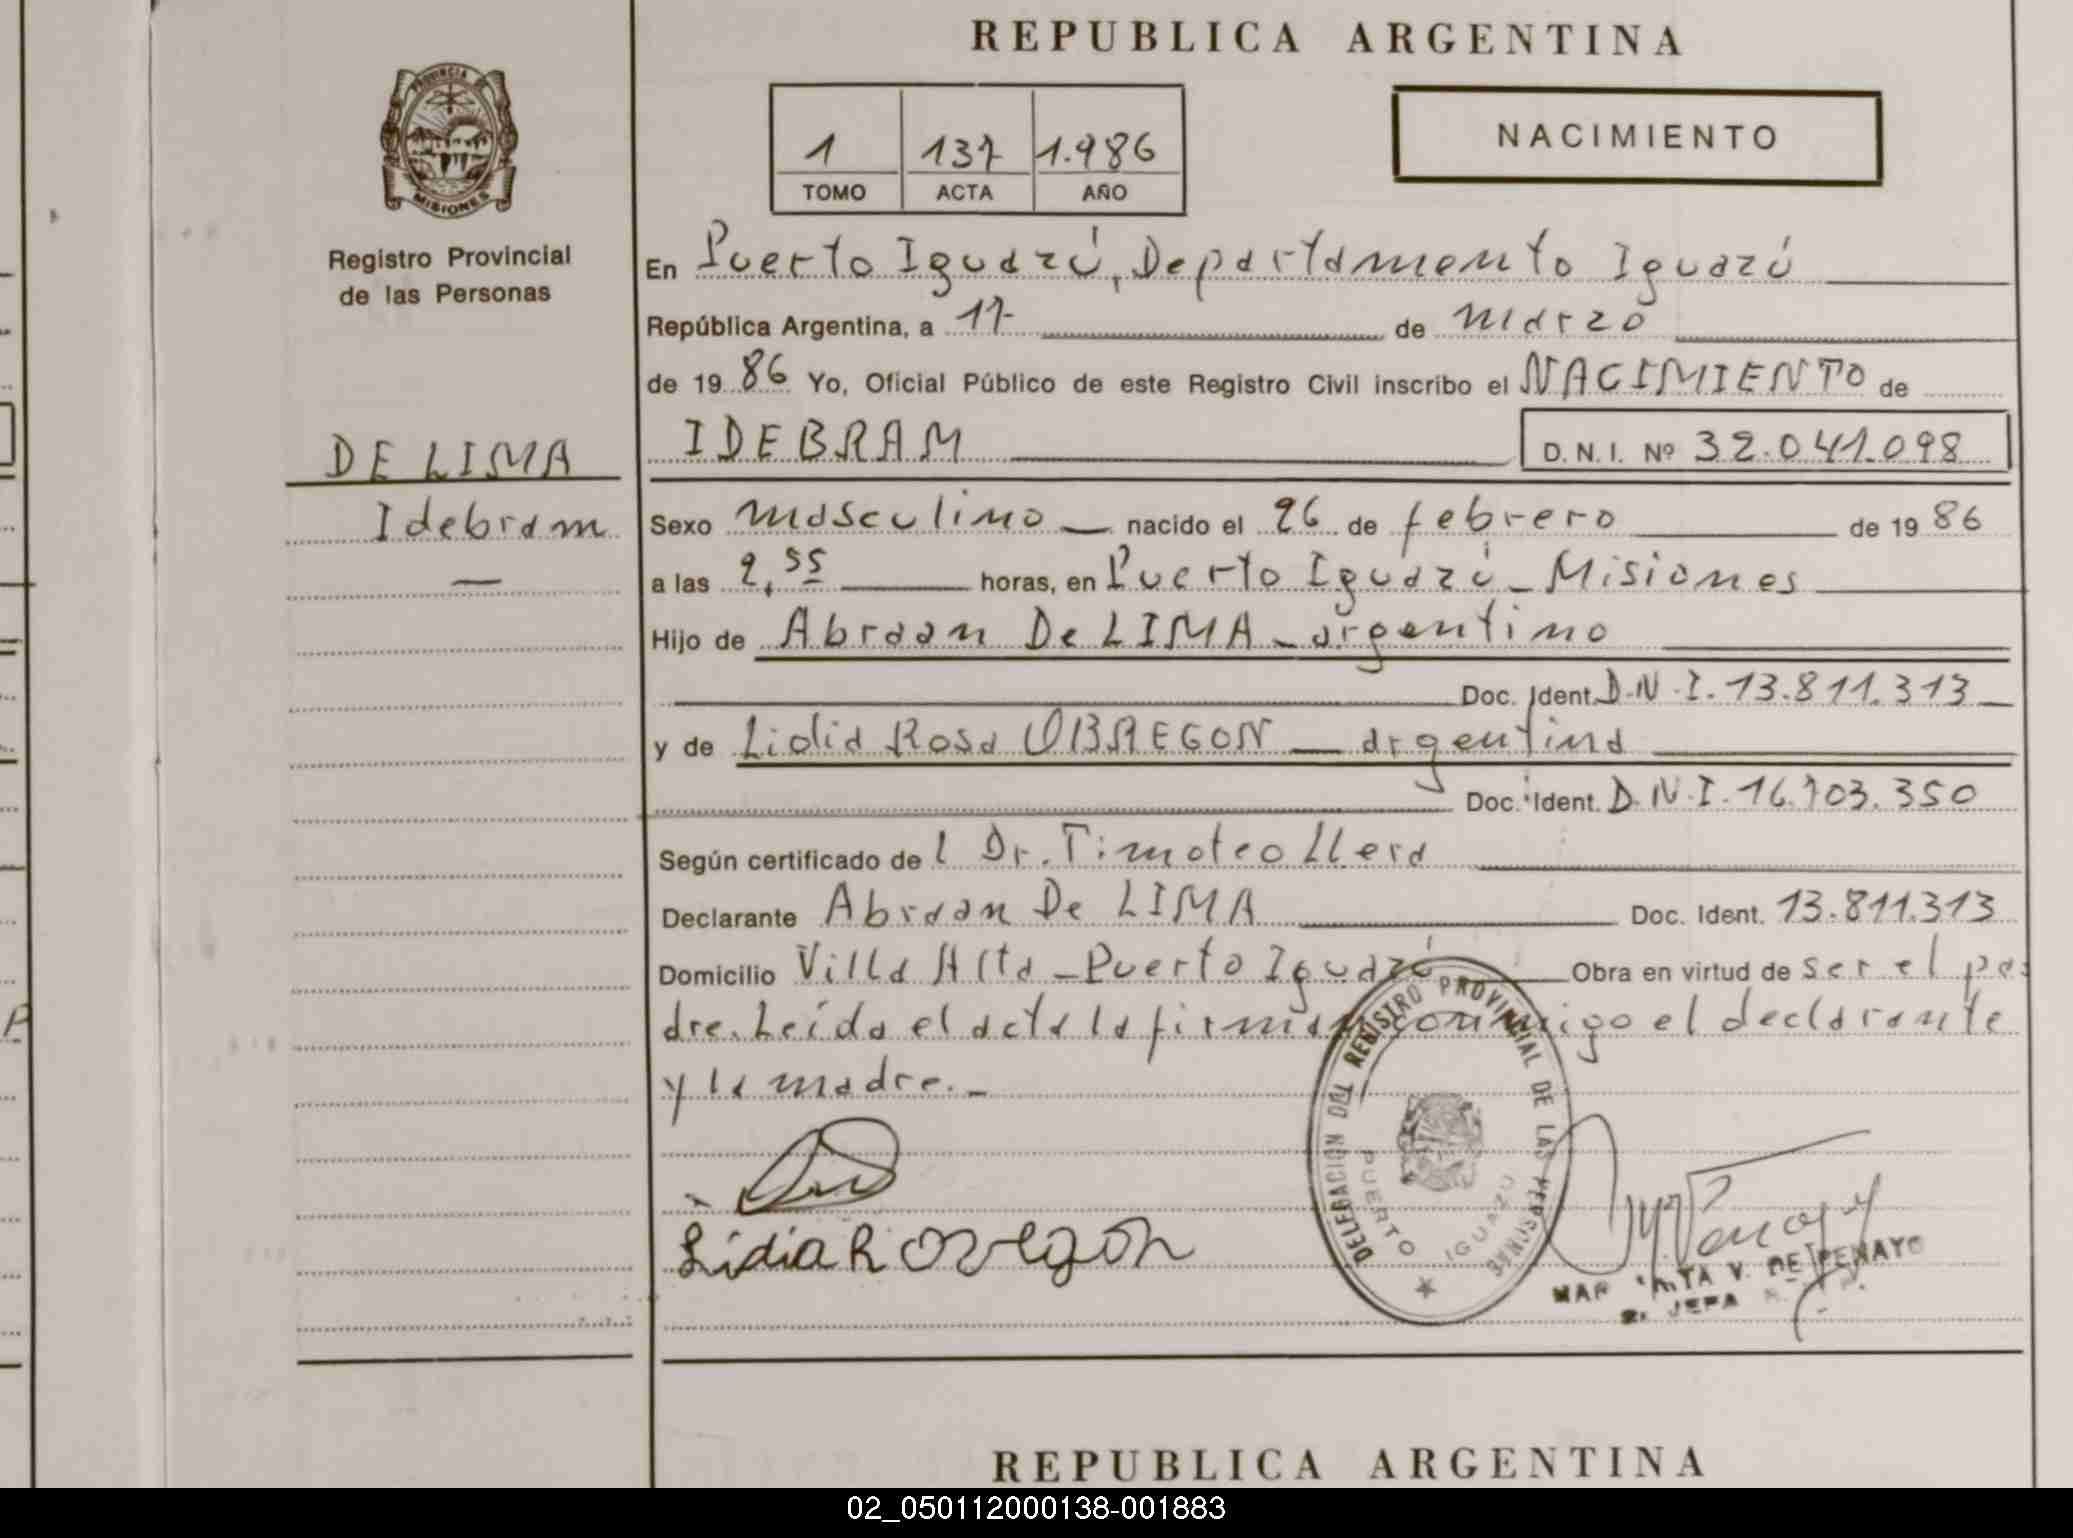 REPUBLICA ARGENTINA
PROVINCIA DE
MISIONES
Registro Provincial
de las Personas
1 137 1.986
TOMO ACTA AÑO
NACIMIENTO
En Puerto Iguazú, Departamento Iguazú
República Argentina, a 17 de marzo
de 1986 Yo, Oficial Público de este Registro Civil inscribo el NACIMIENTO de
DE LIMA
Idebram
IDEBRAM D.N.I. Nº 32.041.098
Sexo masculino nacido el 26 de febrero de 1986
a las 2,55 horas, en Puerto Iguazú - Misiones
Hijo de Abraan De LIMA - argentino
Doc. Ident. D.N.I. 13.811.313
y de Lidia Rosa OBREGON - argentina
Doc. Ident. D.N.I. 16.703.350
Según certificado de l Dr. Timoteo Llera
Declarante Abraan De LIMA Doc. Ident. 13.811.313
Domicilio Villa Alta - Puerto Iguazú Obra en virtud de ser el pa-
dre. Leída el acta la firman conmigo el declarante
y la madre.-
Lidia R Obregon
DELEGACION DEL REGISTRO PROVINCIAL DE LAS PERSONAS
PUERTO IGUAZU
V. DE PENAYO
JEFA
REPUBLICA ARGENTINA
02_050112000138-001883